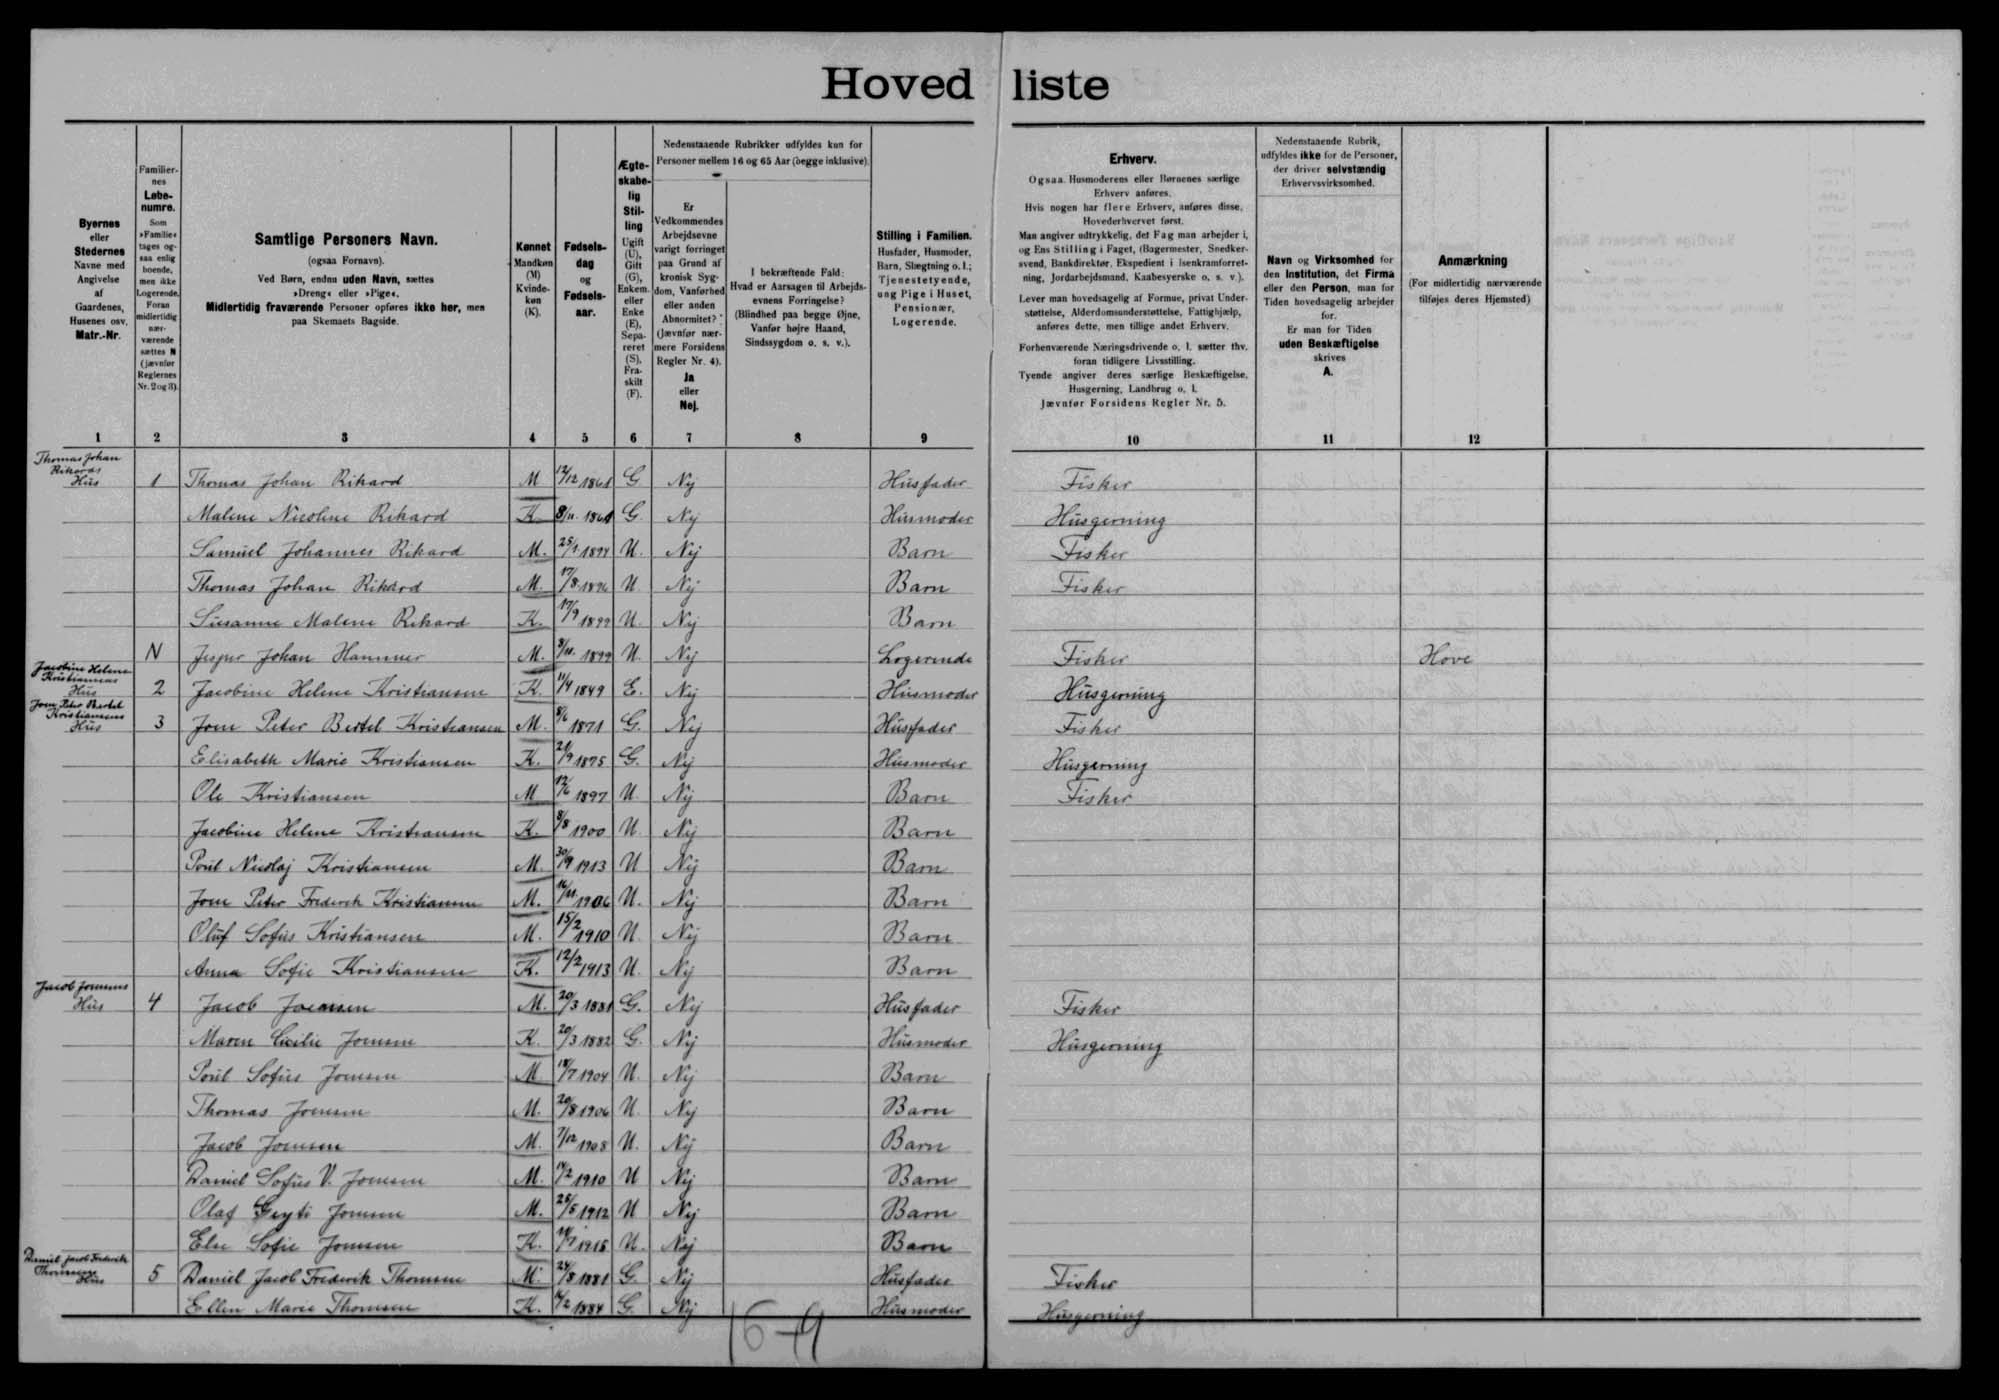 Hovedliste
Byernes
eller
Stedernes
Navne med
Angivelse
af
Gaardenes,
Husenes osv.
Matr.-Nr.
Familier-
nes
Løbe-
numre.
Som
»Familie«
tages og-
saa enlig
boende,
men ikke
Logerende.
Foran
midlertidig
nær-
værende
sættes N
(jævnfør
Reglernes
Nr. 2 og 3).
Samtlige Personers Navn.
(ogsaa Fornavn).
Ved Børn, endnu uden Navn, sættes
»Dreng« eller »Pige«.
Midlertidig fraværende Personer opføres ikke her, men
paa Skemaets Bagside.
Kønnet
Mandkøn
(M)
Kvinde-
køn
(K).
Fødsels-
dag
og
Fødsels-
aar.
Ægte-
skabe-
lig
Stil-
ling
Ugift
(U),
Gift
(G),
Enkem.
eller
Enke
(E),
Sepa-
reret
(S),
Fra-
skilt
(F).
Nedenstaaende Rubrikker udfyldes kun for
Personer mellem 16 og 65 Aar (begge inklusive).
Er
Vedkommendes
Arbejdsevne
varigt forringet
paa Grund af
kronisk Syg-
dom, Vanførhed
eller anden
Abnormitet?
(Jævnfør nær-
mere Forsidens
Regler Nr. 4).
Ja
eller
Nej.
I bekræftende Fald:
Hvad er Aarsagen til Arbejds-
evnens Forringelse?
(Blindhed paa begge Øjne,
Vanfør højre Haand,
Sindssygdom o. s. v.).
Stilling i Familien.
Husfader, Husmoder,
Barn, Slægtning o. l.;
Tjenestetyende,
ung Pige i Huset,
Pensionær,
Logerende.
Erhverv.
Ogsaa Husmoderens eller Børnenes særlige
Erhverv anføres.
Hvis nogen har flere Erhverv, anføres disse,
Hovederhvervet først.
Man angiver udtrykkelig, det Fag man arbejder i,
og Ens Stilling i Faget, (Bagermester, Snedker-
svend, Bankdirektør, Ekspedient i Isenkramforret-
ning, Jordarbejdsmand, Kaabesyerske o. s. v.).
Lever man hovedsagelig af Formue, privat Under-
støttelse, Alderdomsunderstøttelse, Fattighjælp,
anføres dette, men tillige andet Erhverv.
Forhenværende Næringsdrivende o. l. sætter thv.
foran tidligere Livsstilling.
Tyende angiver deres særlige Beskæftigelse,
Husgerning, Landbrug o. l.
Jævnfør Forsidens Regler Nr. 5.
Nedenstaaende Rubrik,
udfyldes ikke for de Personer,
der driver selvstændig
Erhvervsvirksomhed.
Navn og Virksomhed for
den Institution, det Firma
eller den Person, man for
Tiden hovedsagelig arbejder
for.
Er man for Tiden
uden Beskæftigelse
skrives
A.
Anmærkning
(For midlertidig nærværende
tilføjes deres Hjemsted)
1 2 3 4 5 6 7 8 9 10 11 12
Thomas Johan
Rikards
Hus 1 Thomas Johan Rikard M 12/12 1861 G Nej Husfader Fisker
Malene Nicoline Rikard K 8/11 1861 G. Nej Husmoder Husgerning
Samuel Johannes Rikard M. 25/1 1894 U. Nej Barn Fisker
Thomas Johan Rikard M. 17/8 1896 U Nej Barn Fisker
Susanne Malene Rikard K. 17/9 1899 U. Nej Barn
N Jesper Johan Hammer M. 8/11 1899 U. Nej Logerende Fisker Hove
Jacobine Helene
Kristiansens
Hus 2 Jacobine Helene Kristiansen K. 11/4 1849 E. Nej Husmoder Husgerning
Joen Peter Bertel
Kristiansens
Hus 3 Joen Peter Bertel Kristiansen M. 8/6 1871 G. Nej Husfader Fisker
Elisabeth Marie Kristiansen K. 21/9 1875 G. Nej Husmoder Husgerning
Ole Kristiansen M 12/6 1897 U. Nej Barn Fisker
Jacobine Helene Kristiansen K. 8/8 1900 U. Nej Barn
Poul Nicolaj Kristiansen M. 30/9 1913 U Nej Barn
Joen Peter Frederik Kristiansen M. 16/11 1906 U. Nej Barn
Oluf Sofus Kristiansen M. 15/2 1910 U. Nej Barn
Anna Sofie Kristiansen K. 12/2 1913 U. Nej Barn
Jacob Joensens
Hus 4 Jacob Joensen M. 20/3 1881 G. Nej Husfader Fisker
Maren Cicilie Joensen K. 20/3 1882 G. Nej Husmoder Husgerning
Poul Sofus Joensen M 18/7 1904 U. Nej Barn
Thomas Joensen M. 20/8 1906 U. Nej Barn
Jacob Joensen M. 7/12 1908 U. Nej Barn
Daniel Sofus V. Joensen M. 14/2 1910 U Nej Barn
Olaf Geyti Joensen M. 25/5 1912 U Nej Barn
Else Sofie Joensen K. 1915 U. Nej Barn
Daniel Jacob Frederik
Thomsens
Hus 5 Daniel Jacob Frederik Thomsen M. 24/8 1881 G. Nej Husfader Fisker
Ellen Marie Thomsen K. 1884 G. Nej Husmoder Husgerning
16-9